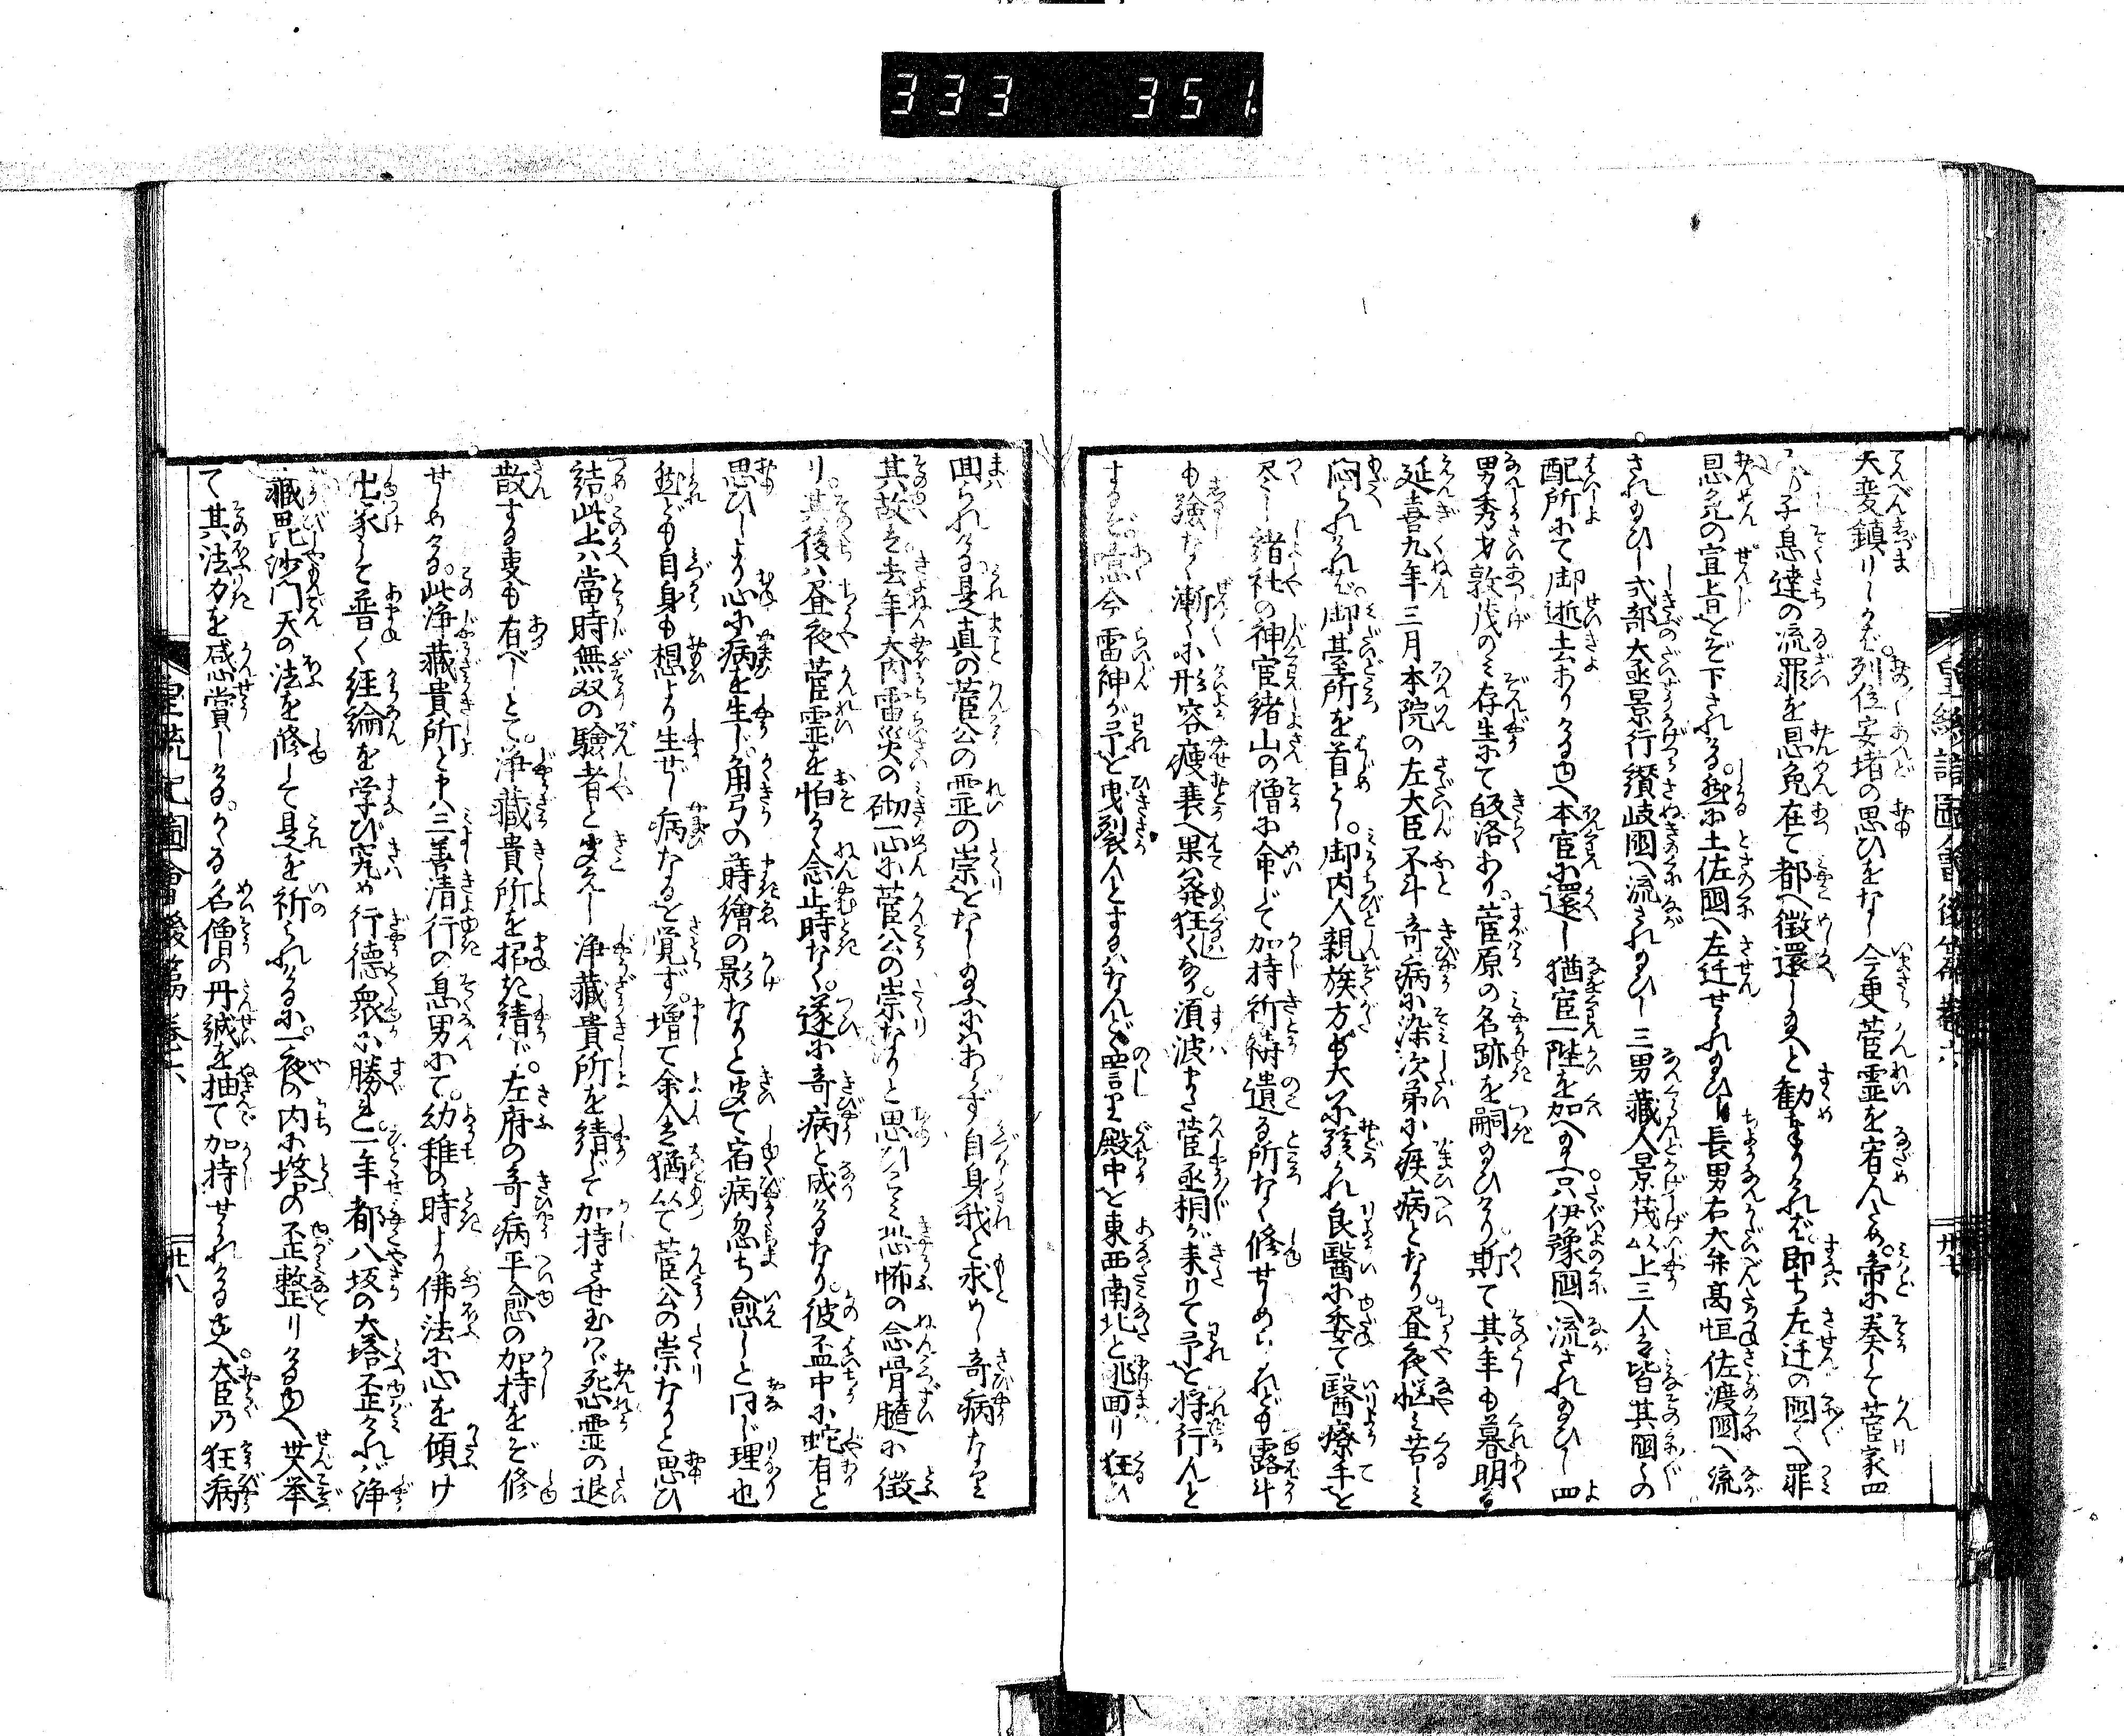 333 351
天変鎮りしかば。列位安堵の思ひをなし今更菅霊を宥んため。帝に奏して菅家四
子息達の流罪を恩免在て都へ徴還し給へと勧奉りければ。即ち左迁の国々へ罪
恩免の宣旨をぞ下されける。然に土佐国へ左迁せられ給ひし長男右大弁高恒佐渡国へ流
され給ひし式部大丞景行讃岐国へ流され給ひし三男蔵人景茂以上三人は皆其国々の
配所にて御逝去ありけるゆへ本官に還し猶官一階を加へ給ふ。只伊豫国へ流され給ひし四
男秀才敦茂のミ存生にて皈洛あり。菅原の名跡を嗣給ひけり。斯て其年も暮明る
延喜九年三月本院の左大臣不斗奇病に染次第に疾病となり。昼夜悩ミ苦しミ
悶られければ。御台所を首とし。御内人親族方も大に駭かれ良醫に委て醫療手を
尽し諸社の神官諸山の僧に命じて加持祈祷遺る所なく修せしめらるれども露斗
も験なく漸々に形容痩衰へ果は発狂くなり。須波また菅丞相が来りて予を将行んと
するぞ。恋今雷神が予を曳裂んとするはなんど詈り殿中を東西南北と逃回り狂ひ
皇統記図會後第巻六 廿八
回られける是真の菅公の霊の祟をなし給ふにあらず自身我と求めし奇病なり
其故は去年大内雷災の砌一心に菅公の祟なりと思ひ恐怖の念骨髄に徴
り。其後ハ昼夜菅霊を怕るゝ念止時なく。遂に奇病と成けるなり。彼盃中に蛇有と
思ひしより心に病を生じ。角弓の蒔繪の影なりと聞て宿病忽ち愈しと同じ理也
然ども自身も想より生ぜし病なるを覚ず。増て余人は猶以て菅公の祟なりと思ひ
結此上ハ當時無双の驗者と聞えし浄蔵貴所を請じて加持させ玉ハゞ死霊の退
散する事も有べしとて。浄蔵貴所を招き請ひ。左府の奇病平愈の加持をぞ修
せしめける。此浄蔵貴所と申ハ三善清行の息男にて。幼稚の時より佛法に心を傾け
出家して普く経綸を学び究め行徳衆に勝る。一年都八坂の大塔歪ければ浄
蔵毘沙門天の法を修して是を祈られけるに。一夜の内に塔の歪整りけるゆへ世人挙
て其法力を感賞しける。かゝる名僧の丹誠を抽て加持せられけるゆへ。大臣の狂病